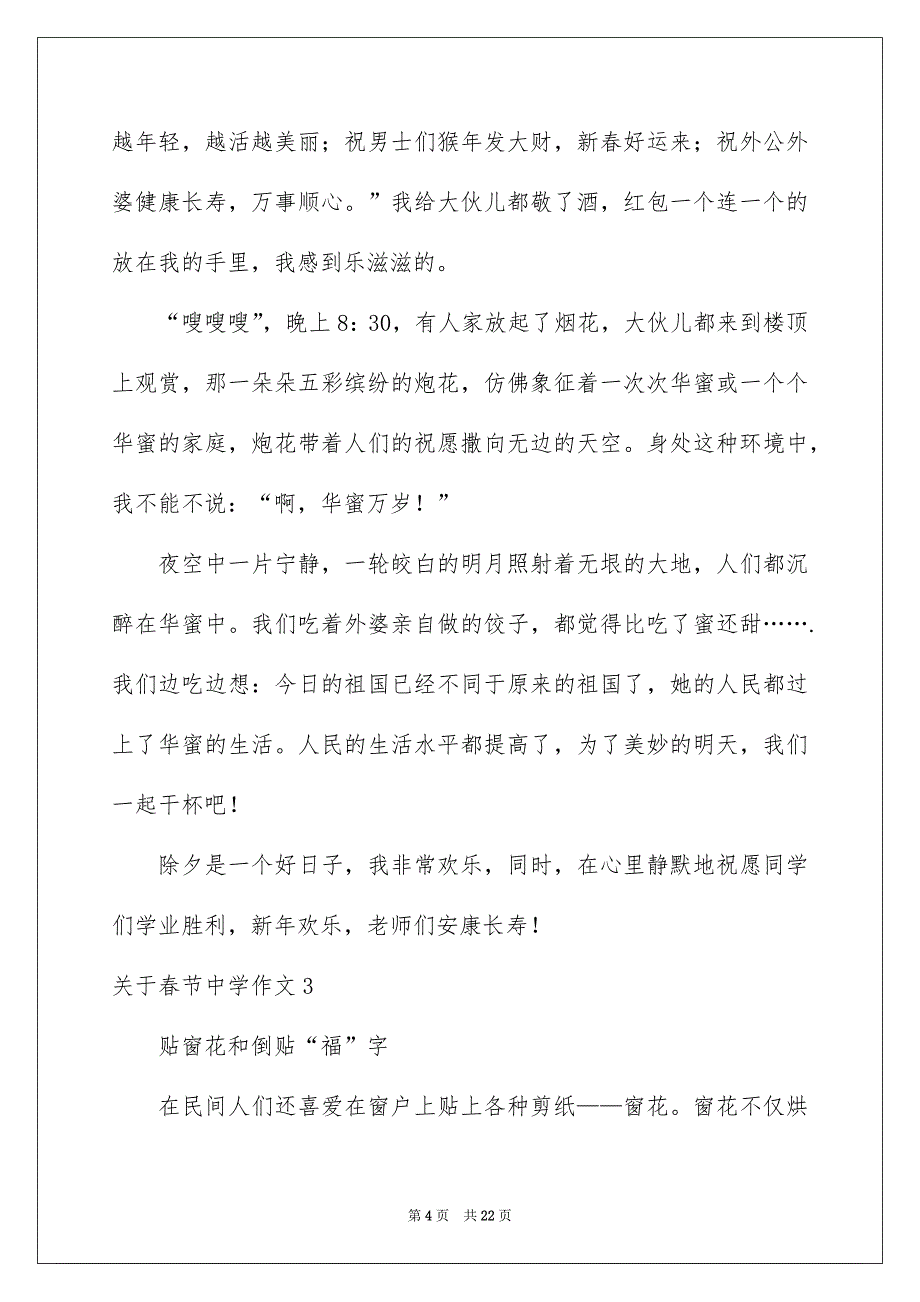 越年轻，越活越美丽；祝男士们猴年发大财，新春好运来；祝外公外
婆健康长寿，万事顺心。”我给大伙儿都敬了酒，红包一个连一个的
放在我的手里，我感到乐滋滋的。
“嗖嗖嗖”，晚上8：30，有人家放起了烟花，大伙儿都来到楼顶
上观赏，那一朵朵五彩缤纷的炮花，仿佛象征着一次次华蜜或一个个
华蜜的家庭，炮花带着人们的祝愿撒向无边的天空。身处这种环境中，
我不能不说：“啊，华蜜万岁！”
夜空中一片宁静，一轮皎白的明月照射着无垠的大地，人们都沉
醉在华蜜中。我们吃着外婆亲自做的饺子，都觉得比吃了蜜还甜…….
我们边吃边想：今日的祖国已经不同于原来的祖国了，她的人民都过
上了华蜜的生活。人民的生活水平都提高了，为了美妙的明天，我们
一起干杯吧！
除夕是一个好日子，我非常欢乐，同时，在心里静默地祝愿同学
们学业胜利，新年欢乐，老师们安康长寿！
关于春节中学作文3
贴窗花和倒贴“福”字
在民间人们还喜爱在窗户上贴上各种剪纸——窗花。窗花不仅烘
第4页 共22页